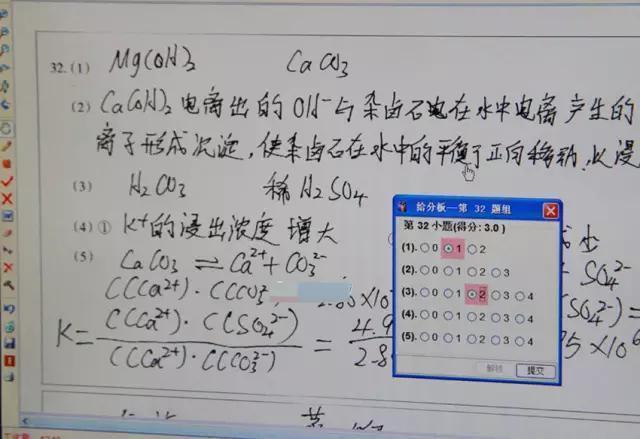 32.(1) Mg(OH)2 CaCO3
(2) Ca(OH)2电离出的OH-与杂卤石电在水中电离产生的
离子形成沉淀,使杂卤石在水中的平衡于正向移动,K浸
(3) H2CO3 稀H2SO4
(4)① K+的浸出浓度 增大
(5) CaCO3 ⇌ Ca2+ + CO32-
SO42-
C(Ca2+)·C(CO32-
K= C(Ca2+)·C(SO42-)
C(Ca2+)·C(CO32-)
= 4.9
2.8
给分板—第 32 题组
第 32 小题(得分:3.0)
(1). 0 1 2
(2). 0 1 2 3
(3). 0 1 2 3 4
(4). 0 1 2 3 4
(5). 0 1 2 3 4
解锁 提交